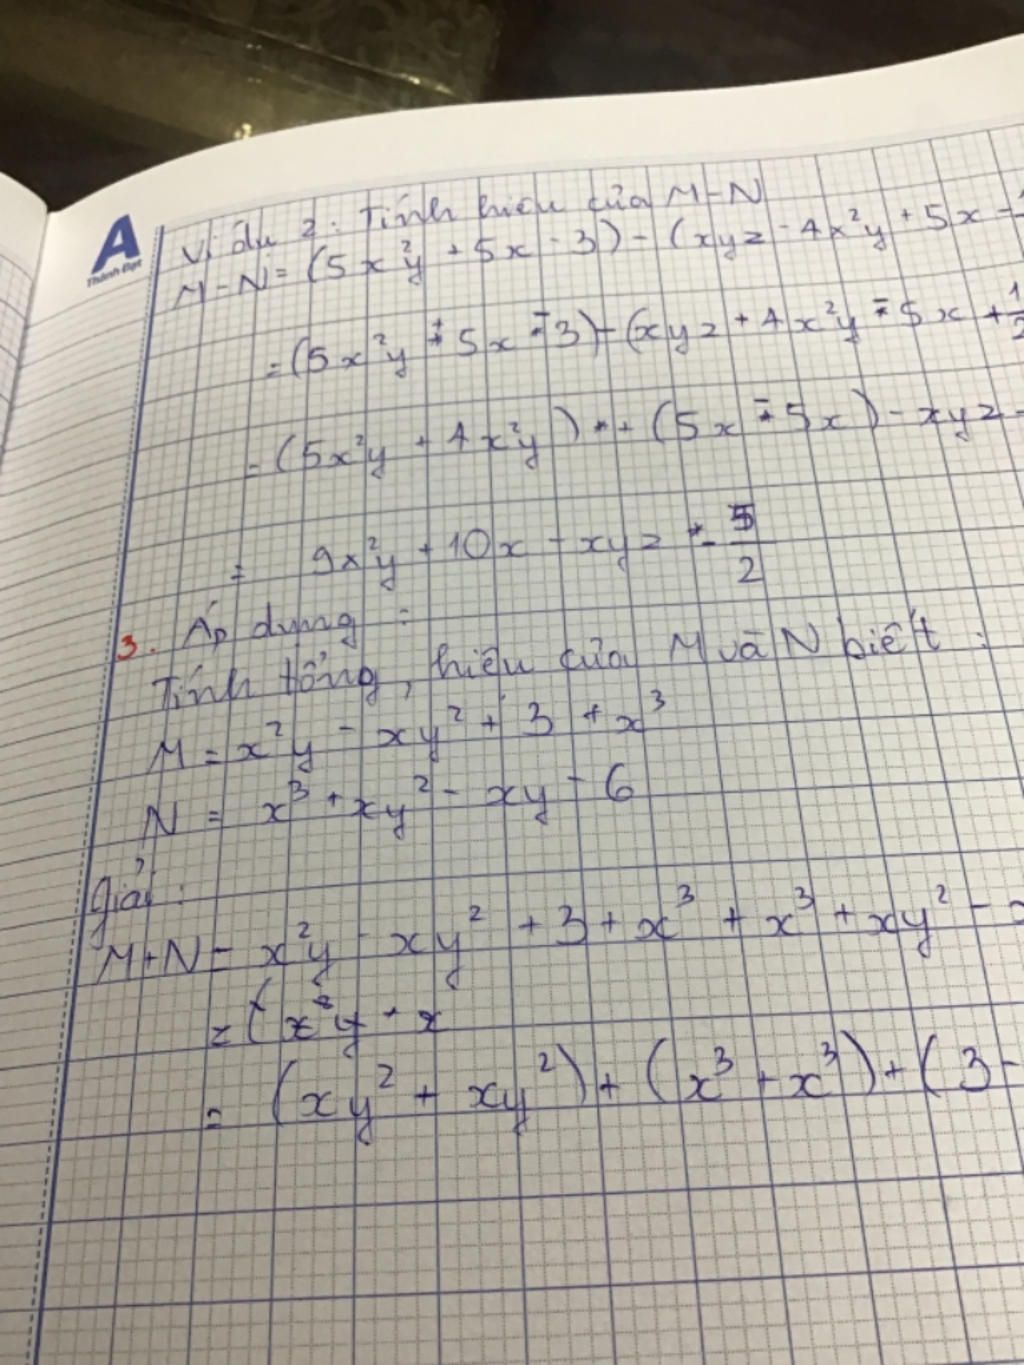 A
Thành Đạt
Ví dụ 2: Tính hiệu của M-N
M-N = (5x²y + 5x - 3) - (xyz - 4x²y + 5x -
= (5x²y + 5x - 3) - (xyz + 4x²y - 5x + 1/2
= (5x²y + 4x²y) + (5x - 5x) - xyz -
= 9x²y + 10x - xyz - 5/2
3. Áp dụng :
Tính tổng, hiệu của M và N biết :
M = x²y - xy² + 3 + x³
N = x³ + xy² - xy - 6
giải :
M+N = x²y - xy² + 3 + x³ + x³ + xy² -
= (x²y + x
= (xy² + xy²) + (x³ + x³) + (3 -